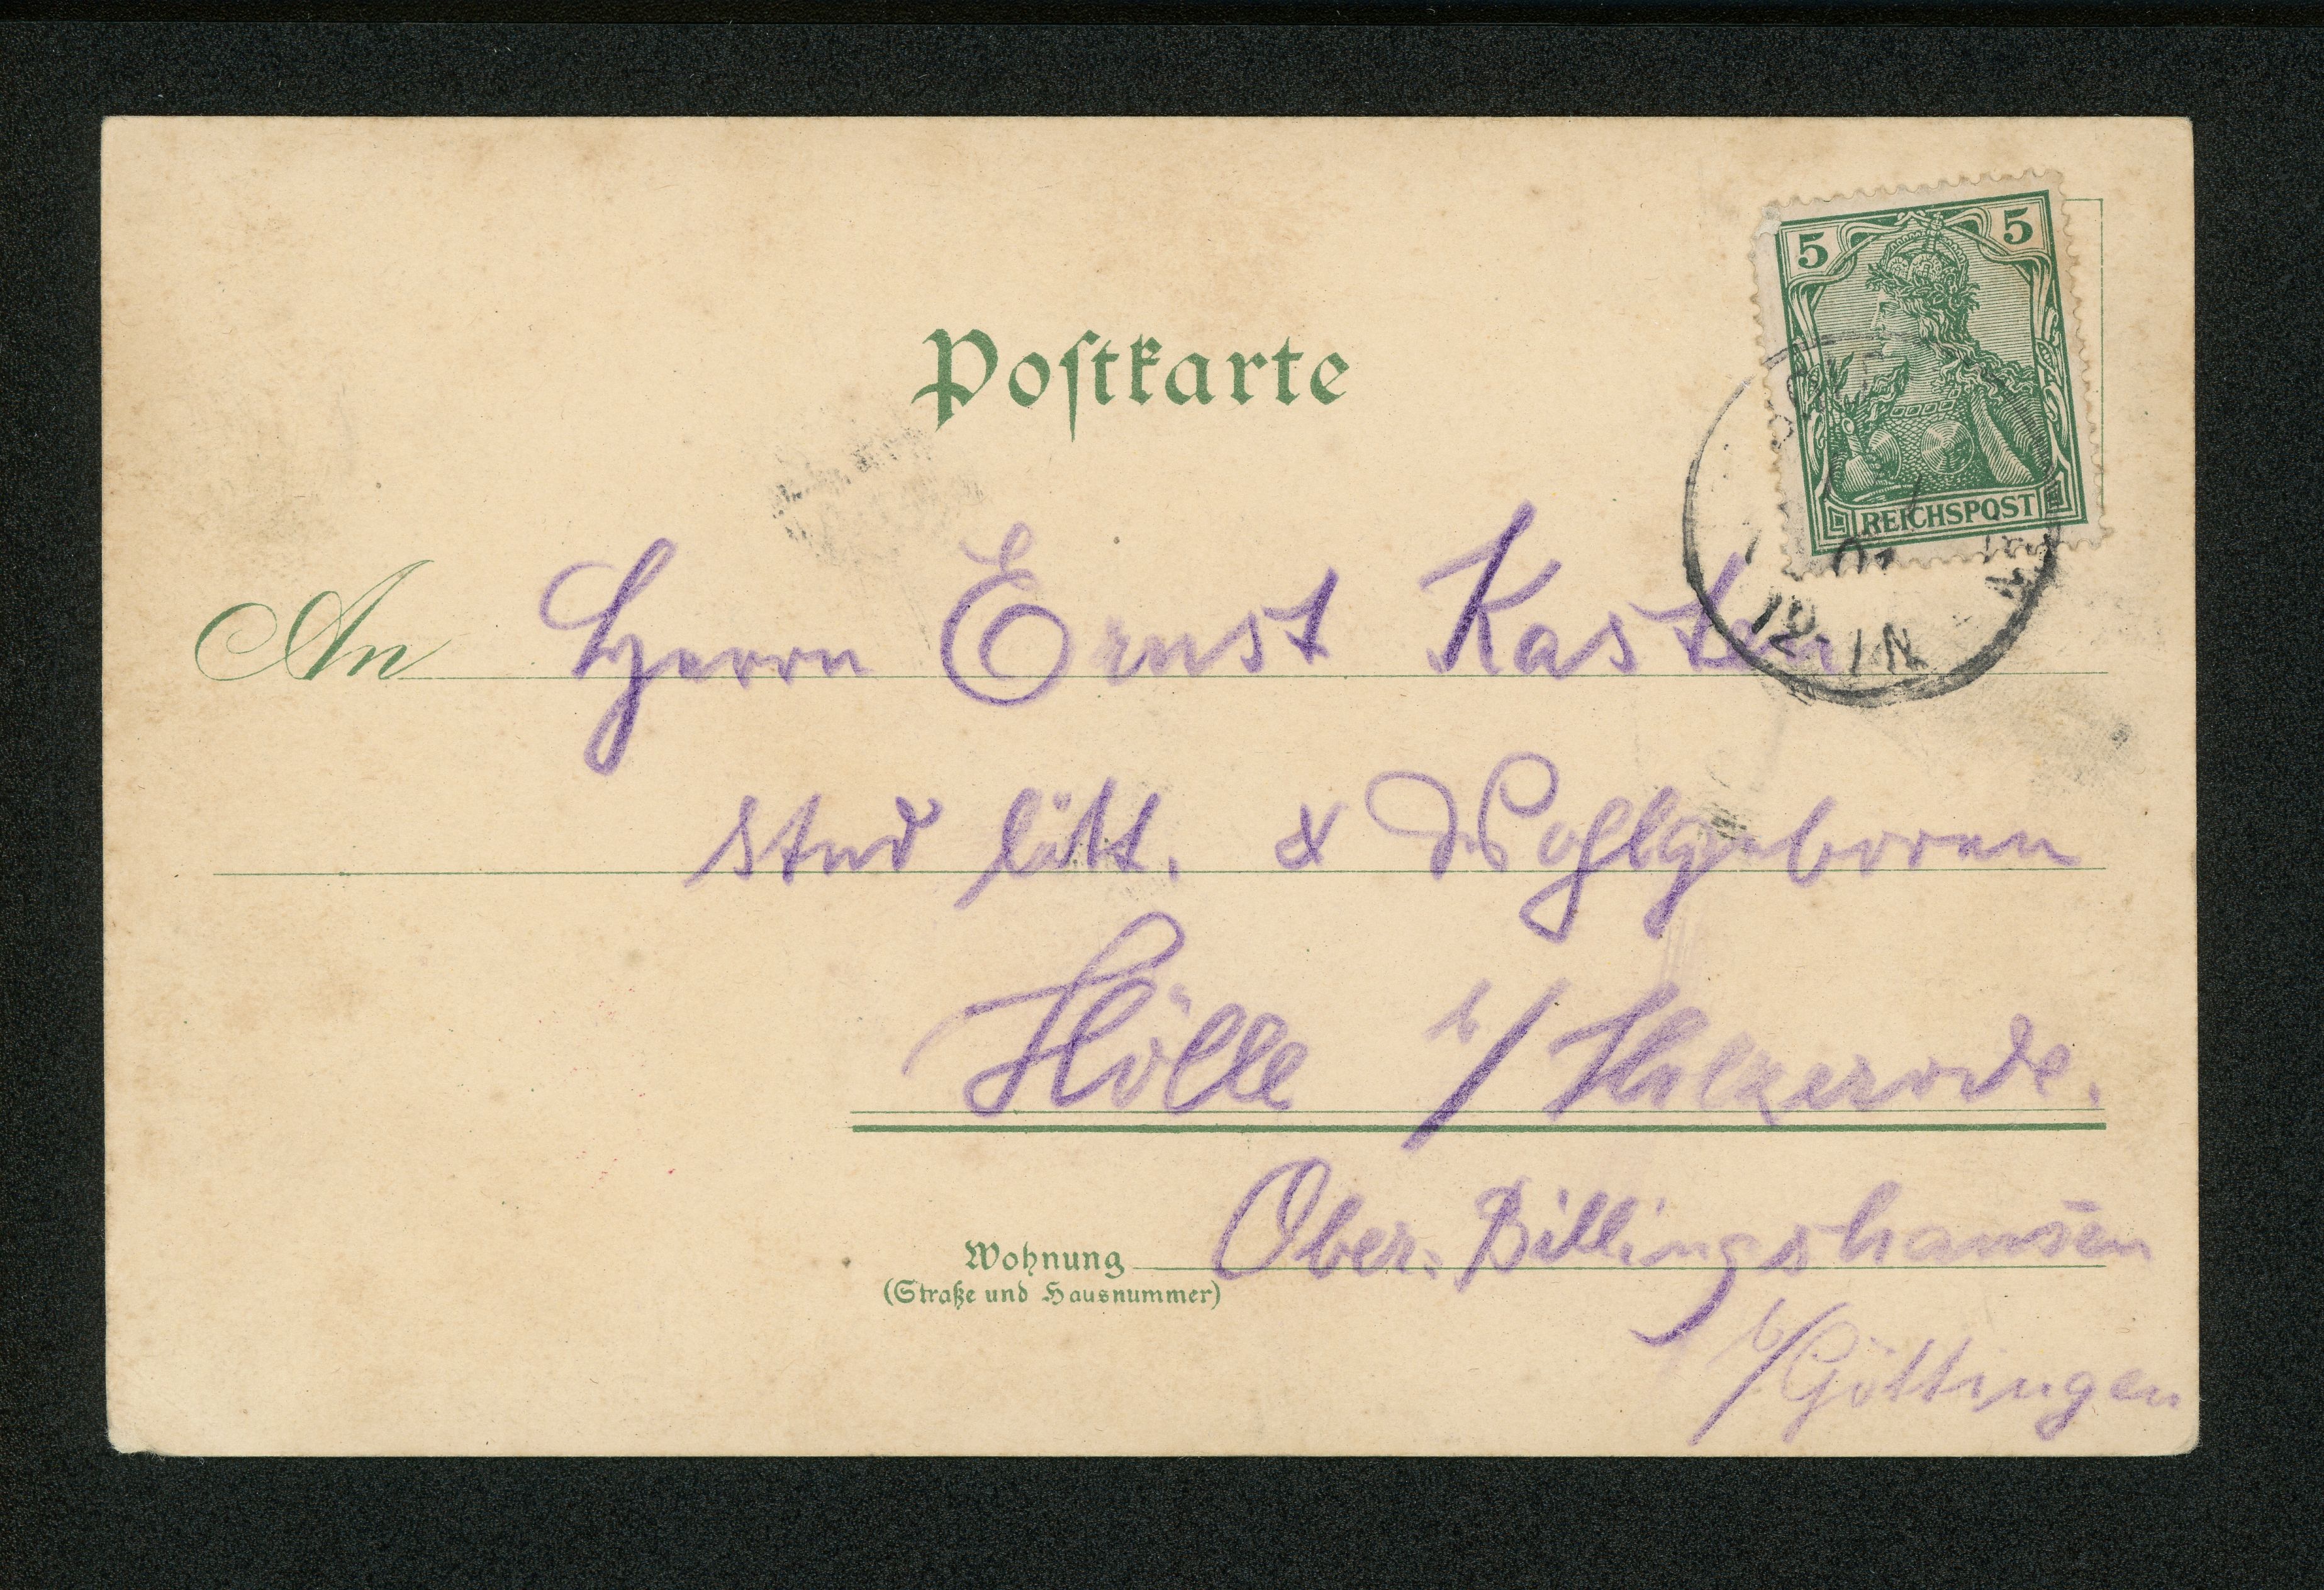 5 5
REICHSPOST
Postkarte
12 IN
An Herrn Ernst Kasten
stud litt. & Wohlgeboren
Hölle b/ Holzerode.
Wohnung Ober-Billingshausen
(Straße und Hausnummer)
b/Göttingen